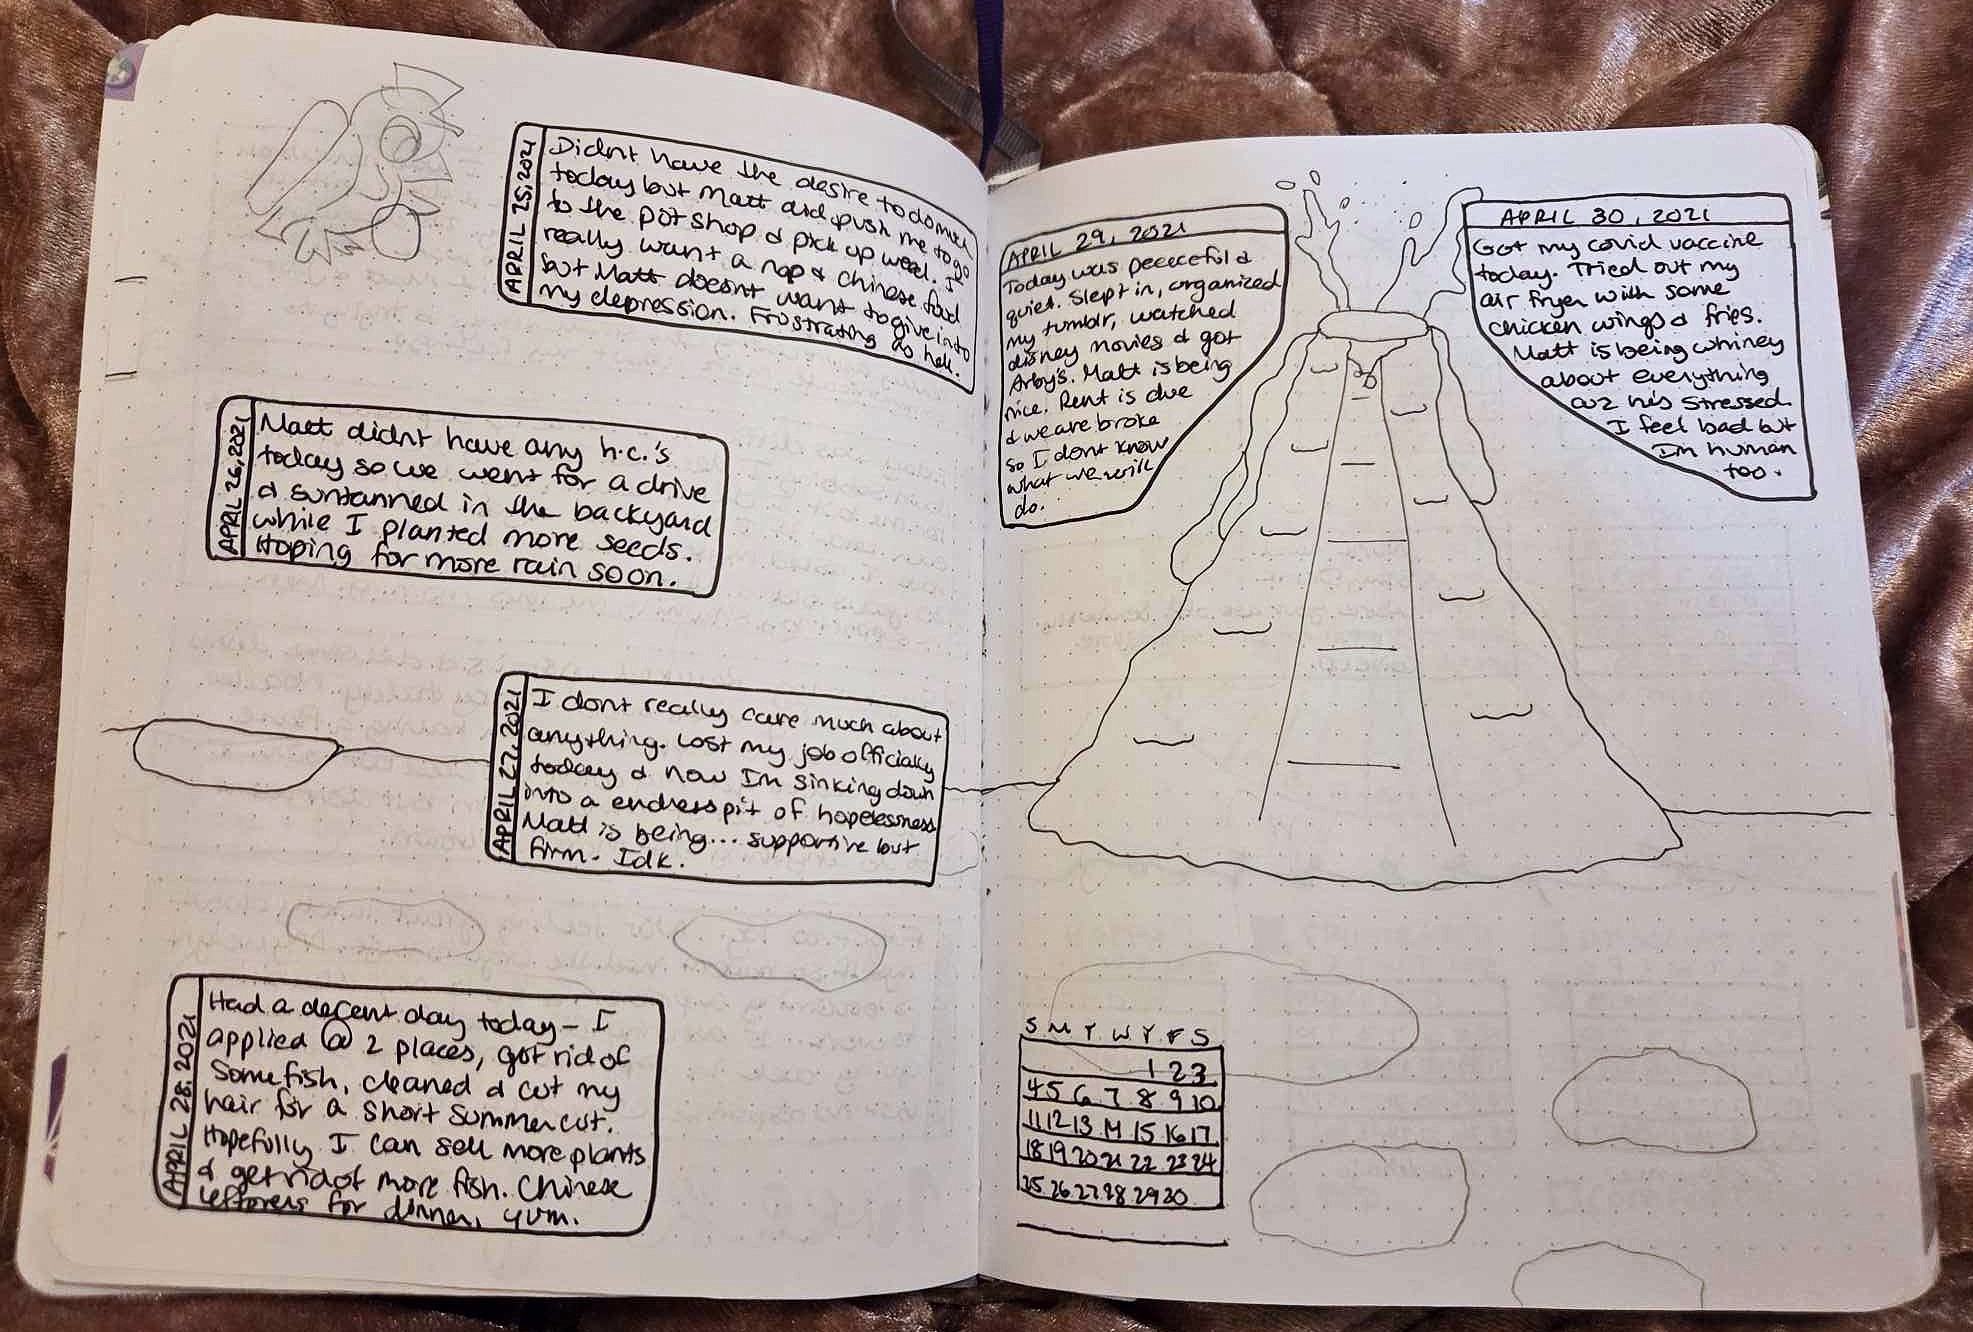 APRIL 25, 2021
Didnt have the desire to do much
today but Matt did push me to go
to the pot shop & pick up weed. I
really want a nap & chinese food
but Matt doesnt want to give into
my depression. Frustrating as hell.
APRIL 26, 2021
Matt didnt have any h.c.'s
today so we went for a drive
& suntanned in the backyard
while I planted more seeds.
Hoping for more rain soon.
APRIL 27, 2021
I dont really care much about
anything. Lost my job officially
today & now Im sinking down
into a endless pit of hopelessness
Matt is being... supportive but
firm. Idk.
APRIL 28, 2021
Had a decent day today - I
applied @ 2 places, got rid of
some fish, cleaned & cut my
hair for a short summer cut.
Hopefully I can sell more plants
& get rid of more fish. Chinese
leftovers for dinner, yum.
APRIL 29, 2021
Today was peaceful &
quiet. Slept in, organized
my tumblr, watched
disney movies & got
Arby's. Matt is being
nice. Rent is due
& we are broke
so I dont know
what we will
do.
APRIL 30, 2021
Got my covid vaccine
today. Tried out my
air fryer with some
chicken wings & fries.
Matt is being whiney
about everything
cuz he's stressed.
I feel bad but
Im human
too.
S M T W T F S
1 2 3
4 5 6 7 8 9 10
11 12 13 14 15 16 17
18 19 20 21 22 23 24
25 26 27 28 29 30